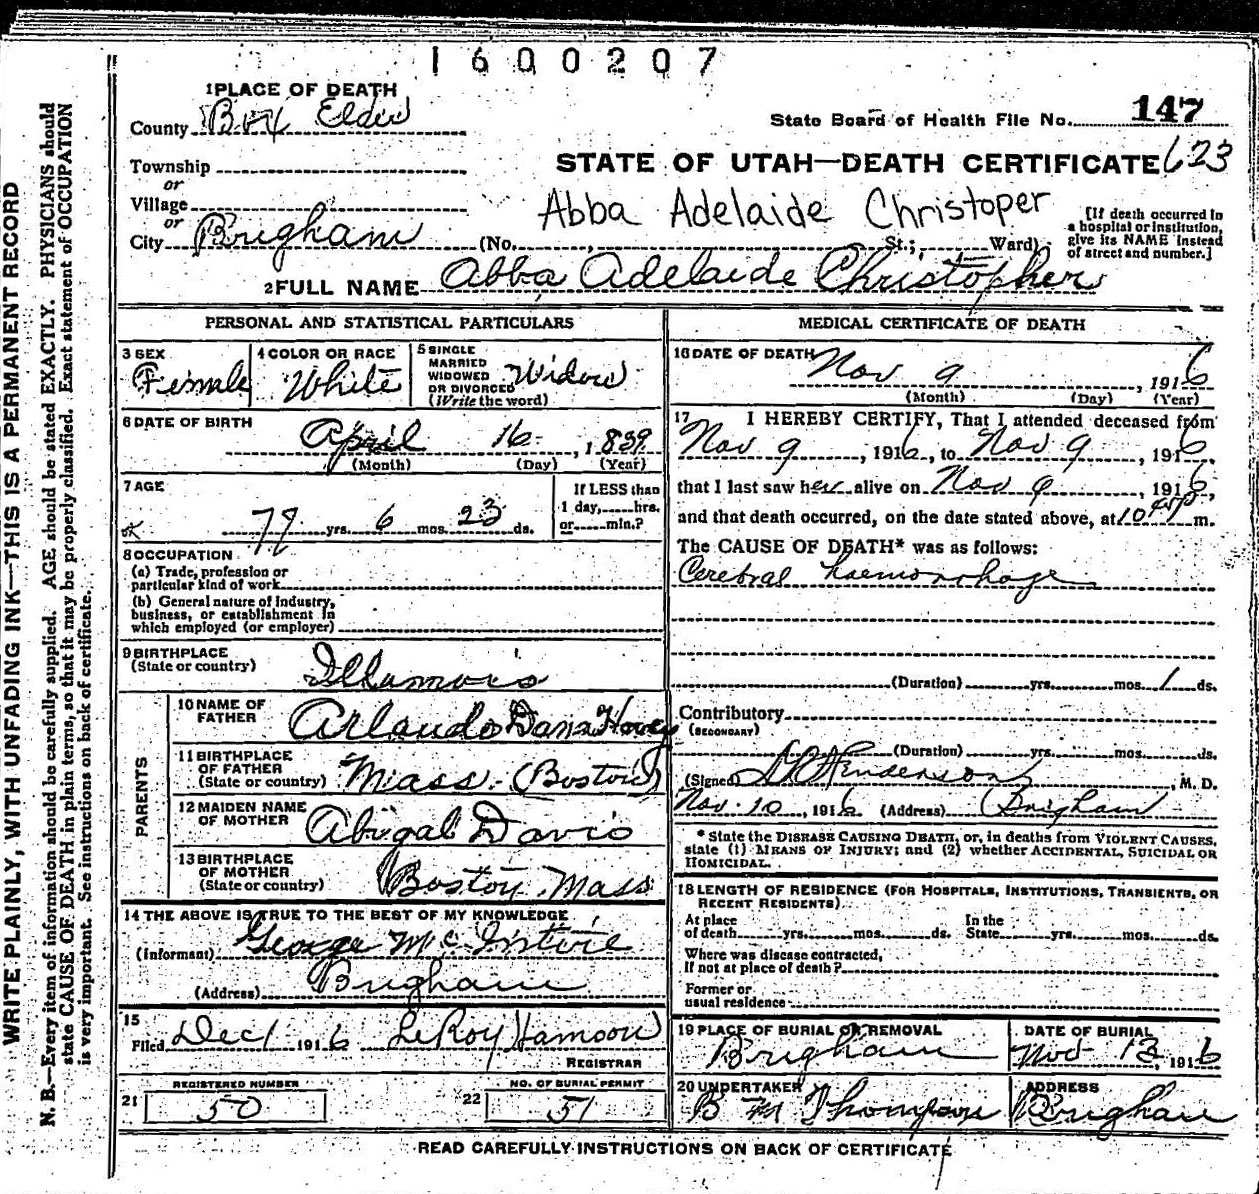 1600207
1 PLACE OF DEATH
County Box Elder
State Board of Health File No. 147
Township
or
STATE OF UTAH—DEATH CERTIFICATE 623
Village
or
Abba Adelaide Christoper
City Brigham (No. , St.; Ward)
[If death occurred in a hospital or institution, give its NAME instead of street and number.]
2 FULL NAME Abba Adelaide Christopher
WRITE PLAINLY, WITH UNFADING INK—THIS IS A PERMANENT RECORD
N. B.—Every item of information should be carefully supplied. AGE should be stated EXACTLY. PHYSICIANS should
state CAUSE OF DEATH in plain terms, so that it may be properly classified. Exact statement of OCCUPATION
is very important. See instructions on back of certificate.
PERSONAL AND STATISTICAL PARTICULARS
3 SEX Female
4 COLOR OR RACE White
5 SINGLE
MARRIED
WIDOWED
OR DIVORCED Widow
(Write the word)
6 DATE OF BIRTH
April 16 , 1839
(Month) (Day) (Year)
7 AGE
77 yrs. 6 mos. 23 ds.
If LESS than
1 day, hrs.
or min.?
8 OCCUPATION
(a) Trade, profession or
particular kind of work
(b) General nature of industry,
business, or establishment in
which employed (or employer)
9 BIRTHPLACE
(State or country) Illanois
PARENTS
10 NAME OF
FATHER Arlando Dana Hovey
11 BIRTHPLACE
OF FATHER
(State or country) Mass. (Boston)
12 MAIDEN NAME
OF MOTHER Abigal Davis
13 BIRTHPLACE
OF MOTHER
(State or country) Boston Mass
14 THE ABOVE IS TRUE TO THE BEST OF MY KNOWLEDGE
(Informant) George McIntire
(Address) Brigham
15
Filed Dec 1 1916 LeRoy Hamson
REGISTRAR
REGISTERED NUMBER
21 50
NO. OF BURIAL PERMIT
22 51
MEDICAL CERTIFICATE OF DEATH
16 DATE OF DEATH Nov 9 , 1916
(Month) (Day) (Year)
17 I HEREBY CERTIFY, That I attended deceased from
Nov 9 , 1916, to Nov 9 , 1916,
that I last saw her alive on Nov 9 , 1916,
and that death occurred, on the date stated above, at 10 m.
The CAUSE OF DEATH* was as follows:
Cerebral haemorrhage
(Duration) yrs. mos. 1 ds.
Contributory
(SECONDARY)
(Duration) yrs. mos. ds.
(Signed) Henderson , M. D.
Nov. 10, 1916 (Address) Brigham
* State the DISEASE CAUSING DEATH, or, in deaths from VIOLENT CAUSES,
state (1) MEANS OF INJURY; and (2) whether ACCIDENTAL, SUICIDAL OR
HOMICIDAL.
18 LENGTH OF RESIDENCE (FOR HOSPITALS, INSTITUTIONS, TRANSIENTS, OR
RECENT RESIDENTS).
At place
of death yrs. mos. ds.
In the
State yrs. mos. ds.
Where was disease contracted,
If not at place of death?
Former or
usual residence
19 PLACE OF BURIAL OR REMOVAL
Brigham
DATE OF BURIAL
Nov 13, 1916
20 UNDERTAKER
B M Thompson
ADDRESS
Brigham
READ CAREFULLY INSTRUCTIONS ON BACK OF CERTIFICATE